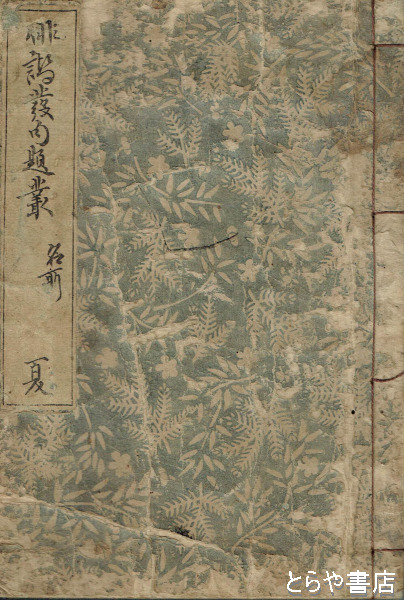 俳諧發句題叢
名所
夏
とらや書店